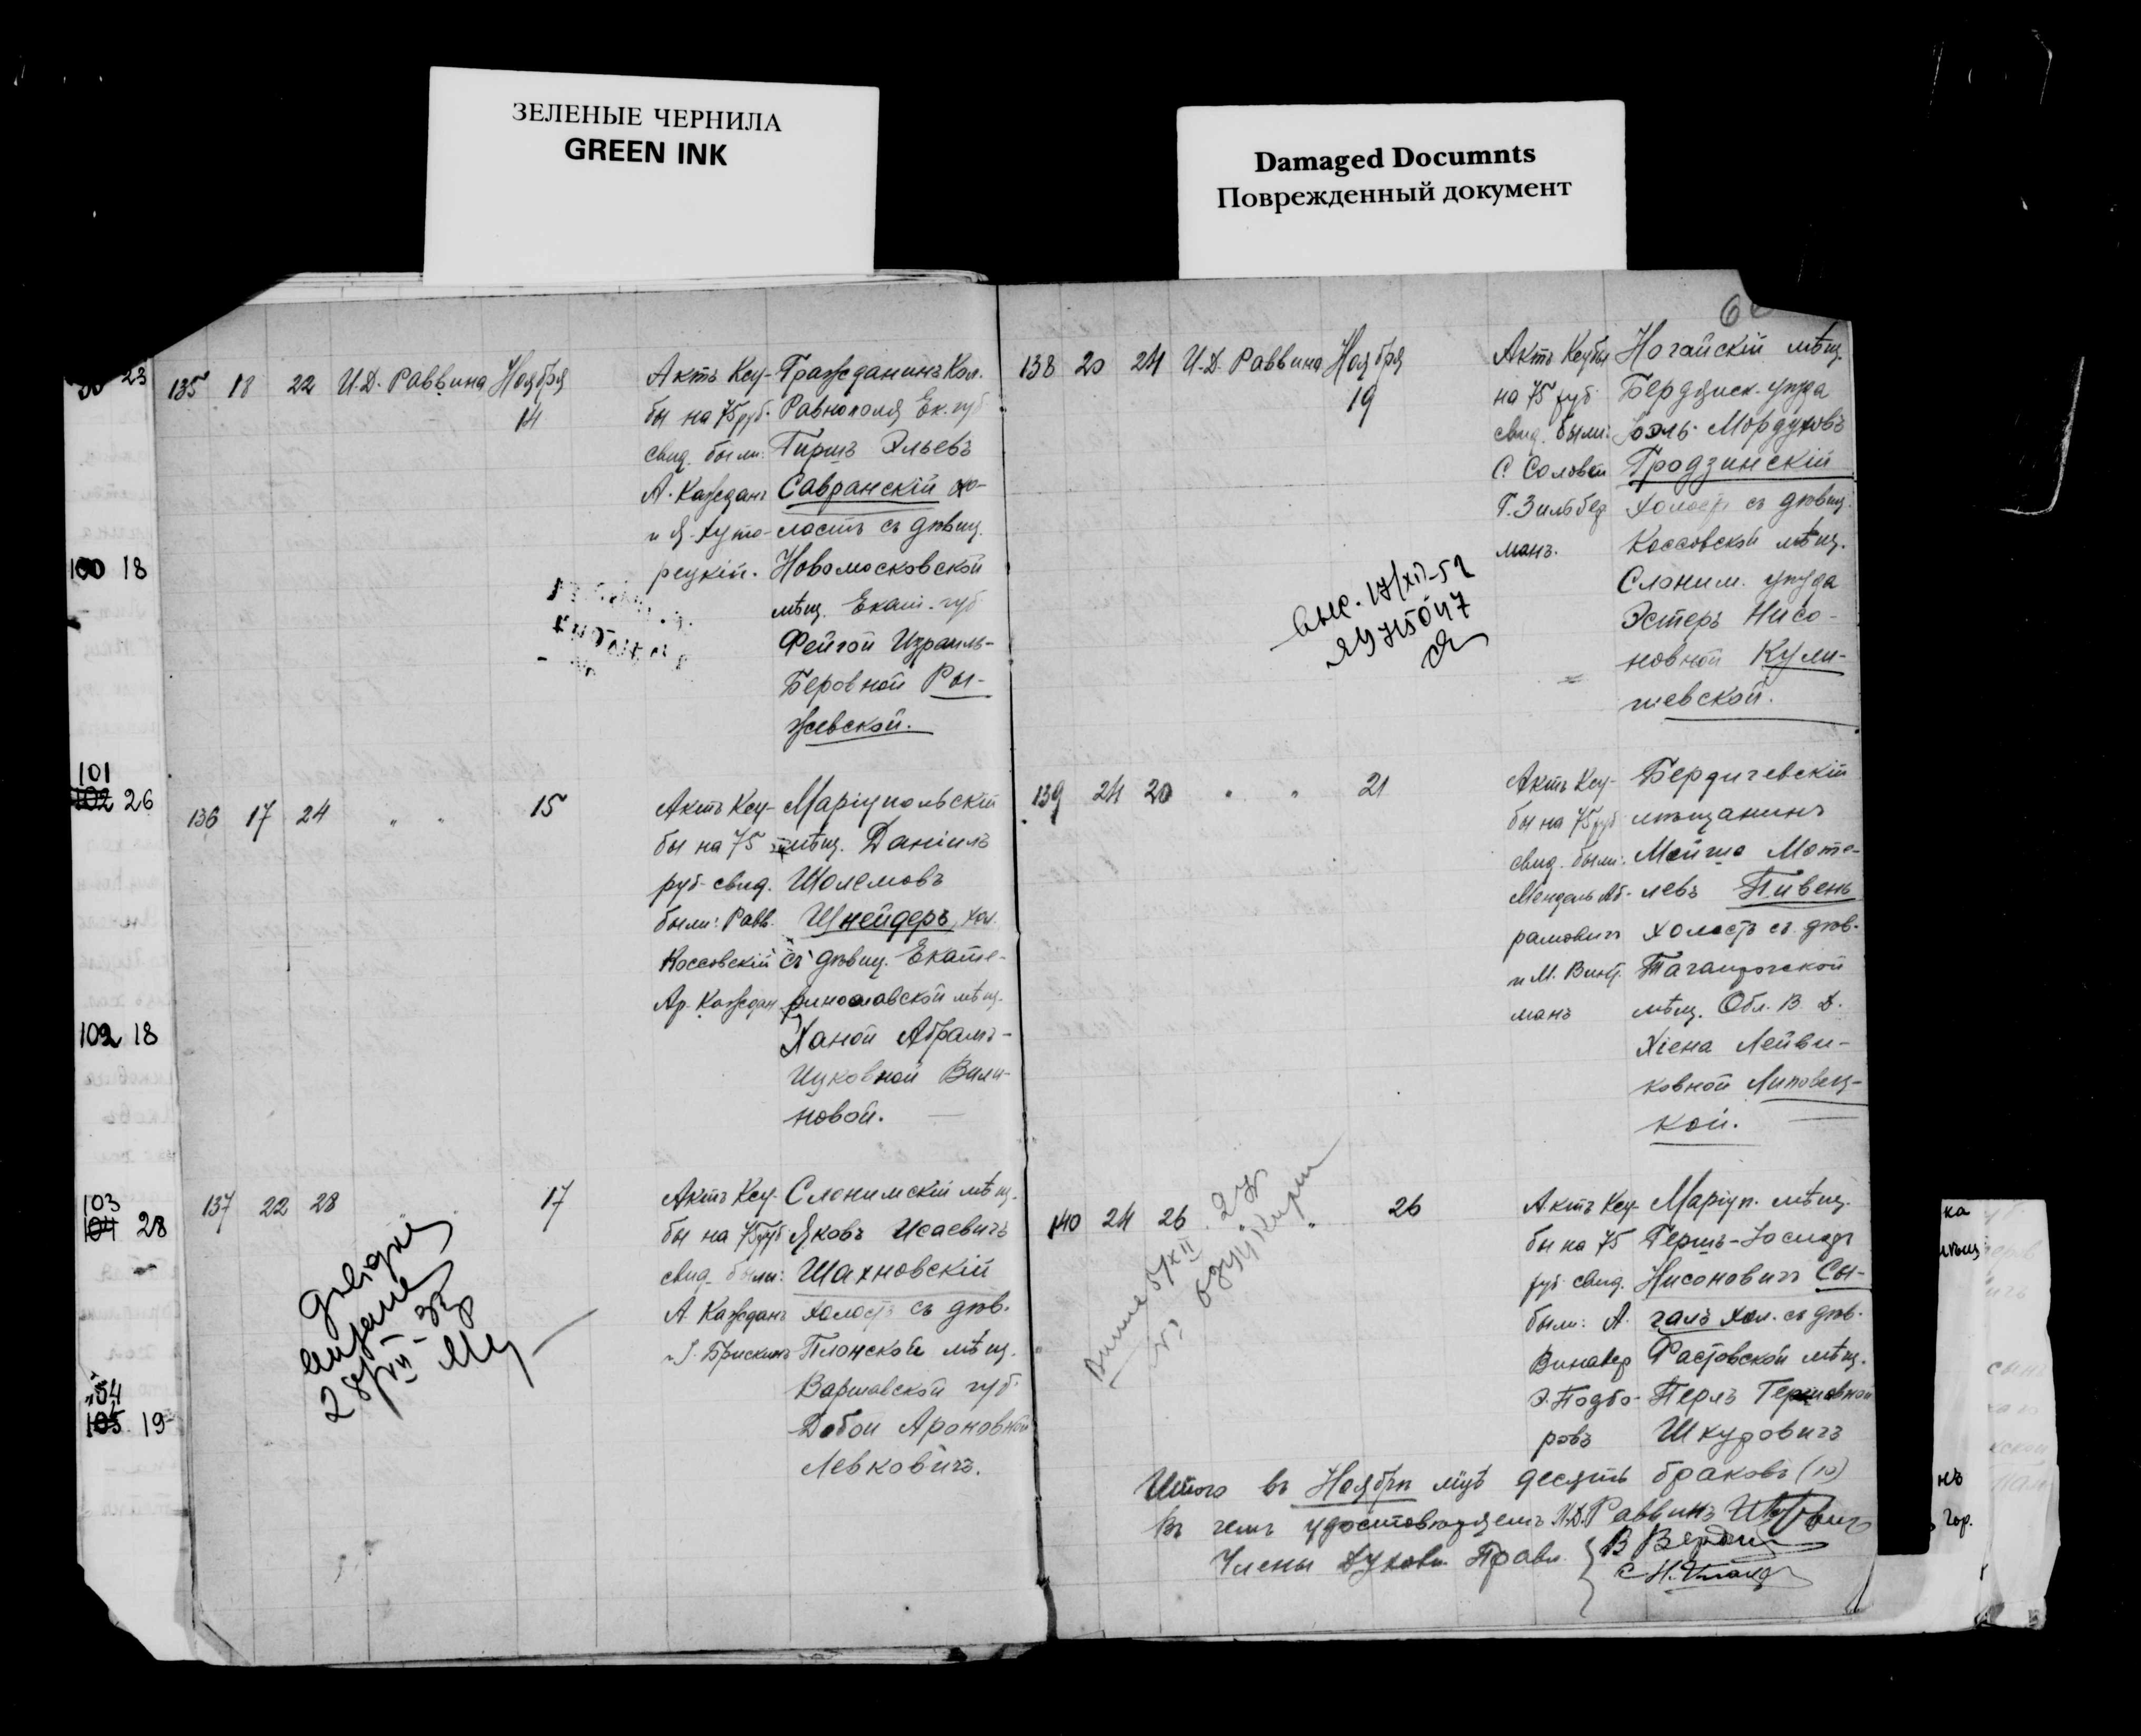 ЗЕЛЕНЫЕ ЧЕРНИЛА
GREEN INK
Damaged Documnts
Поврежденный документ
23
100 18
101
102 26
102 18
103
104 28
105 19
135 18 22 И.Д. Раввина Ноября
14
Актъ Кеу-
бы на 75 руб.
свид. были:
А. Каждан
и Я. Хуто-
рецкій.
Гражданинъ Кол.
Равнополя Ек. губ
Гиршъ Эльевъ
Савранскій хо-
лостъ съ дѣвиц.
Новомосковской
мѣщ. Екат. губ
Фейгой Израиль-
Беровной Ры-
жевской.
136 17 24 " " 15
Актъ Кеу-
бы на 75
руб. свид.
были: Равв.
Коссовскій
Ар. Каждан
Маріупольскій
мѣщ. Даніилъ
Шолемовъ
Шнейдеръ, хол.
съ дѣвиц. Екате-
ринославской мѣщ.
Ханой Абрамъ-
Ицковной Вили-
новой.
137 22 28 17
Актъ Кеу-
бы на 75 руб
свид. были:
А. Кажданъ
Брискинъ
Слонимскій мѣщ.
Яковъ Исаевичъ
Шахновскій
холостъ съ дѣв.
Плонской мѣщ.
Варшавской губ.
Добой Ароновной
Левковичъ.
138 20 24 И.Д. Раввина Ноября
19
Актъ Кеубы
на 75 руб.
свид. были:
С. Соловей
Г. Зильбер
манъ.
Ногайскій мѣщ.
Бердянск. уѣзда
Іоэль Мордуховъ
Гродзинскій
холостъ съ дѣвиц.
Коссовской мѣщ.
Слоним. уѣзда
Эстеръ Нисо-
новной Кули-
шевской.
139 24 20 " " 21
Актъ Кеу-
бы на 75 руб
свид. были:
Мендель Аб-
рамович
и М. Винц.
манъ
Бердичевскій
мѣщанинъ
Мойше Моте-
левъ Пивень
холостъ съ дѣв.
Таганрогской
мѣщ. Обл. В. Д.
Хіена Лейви-
ковной Липовец-
кой.
140 24 26 " 26
Актъ Кеу-
бы на 75
руб. свид.
были: А.
Винавер
Э. Подбо-
ровъ
Маріуп. мѣщ.
Гершъ-Іосифъ
Нисоновичъ Сы-
галъ хол. съ дѣв.
Фастовской мѣщ.
Перлъ Гершовной
Шкуровичъ
Итого въ Ноябрѣ мцѣ десять браковъ (10)
въ чемъ удостовѣряемъ И.Д. Раввинъ
Члены Духовн. Правл.